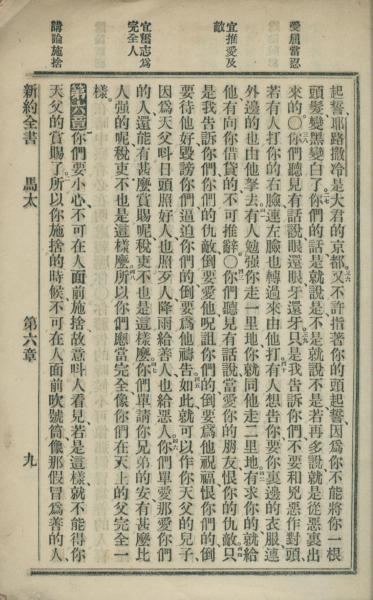 愛屈當忍
宜推愛及
敵
宜奮志爲
完全人
講論施捨
起誓、耶路撒冷是大君的京都、又不許指著你的頭起誓、因爲你不能將你一根
頭髮、變黑變白了、你們的話是就說是不是就說不是若再多說就是從惡裏出
來的、〇你們聽見有話說眼還眼牙還牙只是我告訴你們、不要和兇惡作對頭、
若有人打你的右臉連左臉也轉過來由他打有人想告你要你裏邊的衣服連
外邊的也由他拏去有人勉强你走一里地你就同他走二里地有求你的就給
他有向你借貸的不可推辭〇你們聽見有話說當愛你的朋友恨你的仇敵只
是我告訴你們你們的仇敵倒要愛他咒詛你們的倒要爲他祝福恨你們的倒
要待他好毀謗你們逼迫你們的倒要爲他禱告如此就可以作你天父的兒子、
因爲天父呌日頭照好人也照歹人降雨給善人也給惡人你們單愛那愛你們
的人還能有甚麽賞賜呢稅吏不也是這樣麽你們單請你兄弟的安有甚麽比
人强的呢稅吏不也是這樣麽所以你們應當完全像你們在天上的父完全一
樣。
第六章你們要小心不可在人面前施捨故意呌人看見若是這樣就不能得你
天父的賞賜了所以你施捨的時候不可在人面前吹號筒像那假冒爲善的人、
新約全書 馬太 第六章 九